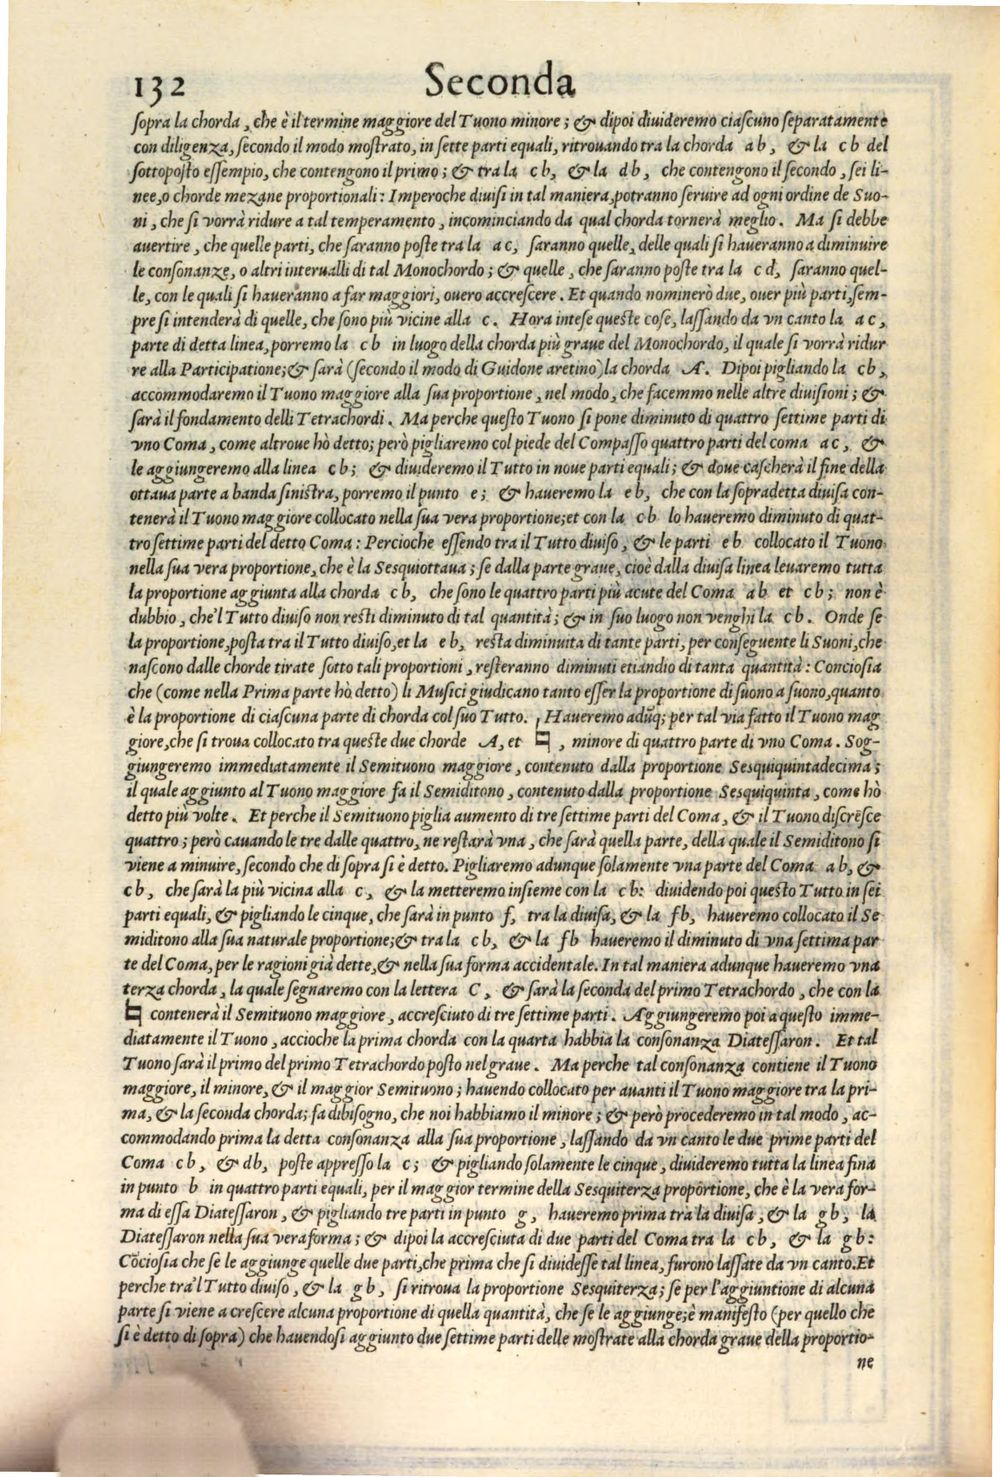 132 Seconda
ſopra la chorda, che è il termine maggiore del Tuono minore; & dipoi diuideremo ciaſcuno ſeparatamente
con diligenza, ſecondo il modo moſtrato, in ſette parti equali, ritrouando tra la chorda a b, & la c b del
ſottopoſto eſſempio, che contengono il primo; & tra la c b, & la d b, che contengono il ſecondo, ſei li-
nee, o chorde mezane proportionali: Imperoche diuiſi in tal maniera, potranno ſeruire ad ogni ordine de Suo-
ni, che ſi vorrà ridure a tal temperamento, incominciando da qual chorda tornerà meglio. Ma ſi debbe
auertire, che quelle parti, che ſaranno poſte tra la a c, ſaranno quelle, delle quali ſi haueranno a diminuire
le conſonanze, o altri interualli di tal Monochordo; & quelle, che ſaranno poſte tra la c d, ſaranno quel-
le, con le quali ſi haueranno a far maggiori, ouero accreſcere. Et quando nominerò due, ouer più parti, ſem-
pre ſi intenderà di quelle, che ſono più vicine alla c. Hora inteſe queſte coſe, laſſando da vn canto la a c,
parte di detta linea, porremo la c b in luogo della chorda più graue del Monochordo, il quale ſi vorrà ridur
re alla Participatione; & ſarà (ſecondo il modo di Guidone aretino) la chorda A. Dipoi pigliando la c b,
accommodaremo il Tuono maggiore alla ſua proportione, nel modo, che facemmo nelle altre diuiſioni; &
ſarà il fondamento delli Tetrachordi. Ma perche queſto Tuono ſi pone diminuto di quattro ſettime parti di
vno Coma, come altroue hò detto; però pigliaremo col piede del Compaſſo quattro parti del coma a c, &
le aggiungeremo alla linea c b; & diuideremo il Tutto in noue parti equali; & doue caſcherà il fine della
ottaua parte a banda ſiniſtra, porremo il punto e; & haueremo la e b, che con la ſopradetta diuiſa con-
tenerà il Tuono maggiore collocato nella ſua vera proportione; et con la c b lo haueremo diminuto di quat-
tro ſettime parti del detto Coma: Percioche eſſendo tra il Tutto diuiſo, & le parti e b collocato il Tuono
nella ſua vera proportione, che è la Seſquiottaua; ſe dalla parte graue, cioè dalla diuiſa linea leuaremo tutta
la proportione aggiunta alla chorda c b, che ſono le quattro parti più acute del Coma a b et c b; non è
dubbio, che'l Tutto diuiſo non reſti diminuto di tal quantità; & in ſuo luogo non venghi la c b. Onde ſe
la proportione, poſta tra il Tutto diuiſo, et la e b, reſta diminuita di tante parti, per conſeguente li Suoni, che
naſcono dalle chorde tirate ſotto tali proportioni, reſteranno diminuti etiandio di tanta quantità: Concioſia
che (come nella Prima parte hò detto) li Muſici giudicano tanto eſſer la proportione di ſuono a ſuono, quanto
è la proportione di ciaſcuna parte di chorda col ſuo Tutto. Haueremo adũq; per tal via fatto il Tuono mag
giore, che ſi troua collocato tra queſte due chorde A, et ♮, minore di quattro parte di vno Coma. Sog-
giungeremo immediatamente il Semituono maggiore, contenuto dalla proportione Seſquiquintadecima;
il quale aggiunto al Tuono maggiore fa il Semiditono, contenuto dalla proportione Seſquiquinta, come hò
detto più volte. Et perche il Semituono piglia aumento di tre ſettime parti del Coma, & il Tuono diſcreſce
quattro; però cauando le tre dalle quattro, ne reſtarà vna, che ſarà quella parte, della quale il Semiditono ſi
viene a minuire, ſecondo che di ſopra ſi è detto. Pigliaremo adunque ſolamente vna parte del Coma a b, &
c b, che ſarà la più vicina alla c, & la metteremo inſieme con la c b: diuidendo poi queſto Tutto in ſei
parti equali, & pigliando le cinque, che ſarà in punto f, tra la diuiſa, & la fb, haueremo collocato il Se
miditono alla ſua naturale proportione; & tra la c b, & la fb haueremo il diminuto di vna ſettima par
te del Coma, per le ragioni già dette, & nella ſua forma accidentale. In tal maniera adunque haueremo vna
terza chorda, la quale ſegnaremo con la lettera C, & ſarà la ſeconda del primo Tetrachordo, che con la
♮ contenerà il Semituono maggiore, accreſciuto di tre ſettime parti. Aggiungeremo poi a queſto imme-
diatamente il Tuono, accioche la prima chorda con la quarta habbia la conſonanza Diateſſaron. Et tal
Tuono ſarà il primo del primo Tetrachordo poſto nel graue. Ma perche tal conſonanza contiene il Tuono
maggiore, il minore, & il maggior Semituono; hauendo collocato per auanti il Tuono maggiore tra la pri-
ma, & la ſeconda chorda; fa dibiſogno, che noi habbiamo il minore; & però procederemo in tal modo, ac-
commodando prima la detta conſonanza alla ſua proportione, laſſando da vn canto le due prime parti del
Coma c b, & db, poſte appreſſo la c; & pigliando ſolamente le cinque, diuideremo tutta la linea fina
in punto b in quattro parti equali, per il maggior termine della Seſquiterza proportione, che è la vera for-
ma di eſſa Diateſſaron, & pigliando tre parti in punto g, haueremo prima tra la diuiſa, & la g b, la
Diateſſaron nella ſua vera forma; & dipoi la accreſciuta di due parti del Coma tra la c b, & la g b:
Cõcioſia che ſe le aggiunge quelle due parti, che prima che ſi diuideſſe tal linea, furono laſſate da vn canto. Et
perche tra'l Tutto diuiſo, & la g b, ſi ritroua la proportione Seſquiterza; ſe per l'aggiuntione di alcuna
parte ſi viene a creſcere alcuna proportione di quella quantità, che ſe le aggiunge; è manifeſto (per quello che
ſi è detto di ſopra) che hauendoſi aggiunto due ſettime parti delle moſtrate alla chorda graue della proportio-
ne